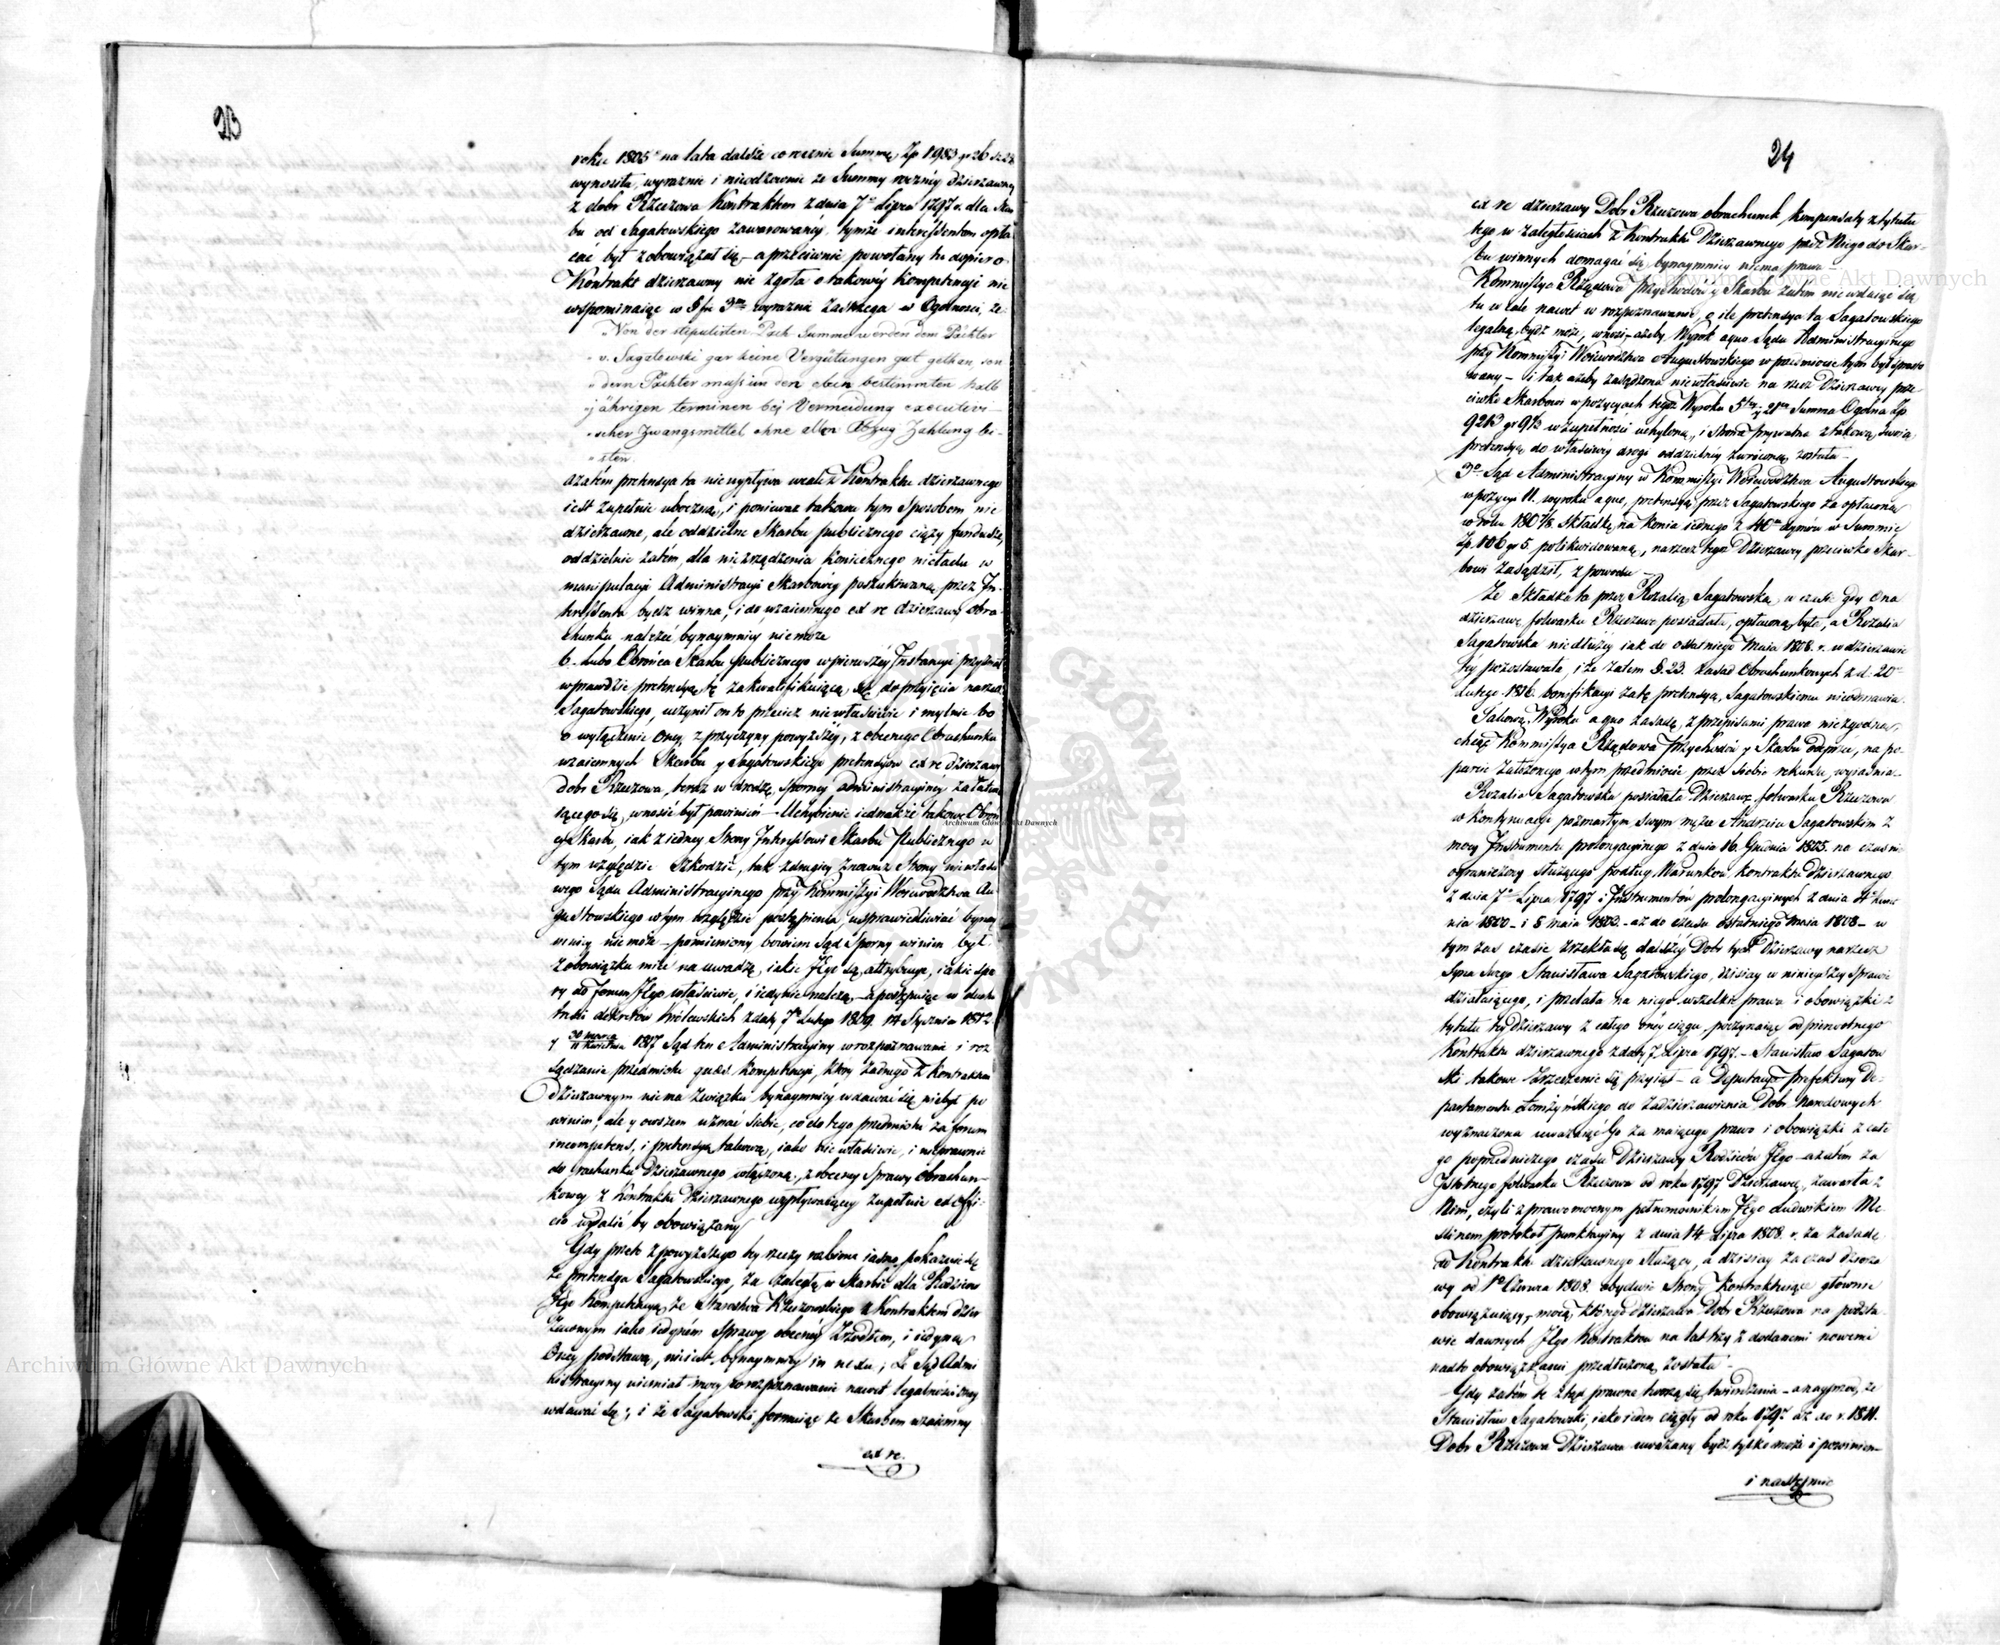 23
roku 1805 na lata dalsze corocznie Summę Zp 1983 gr 26
wynosiła, wyraznie i nieodzownie ze Summy roczney dzierzawney
z dobr Rzeczowa Kontraktem z dnia 7º Lipca 1797 r. dla Skar
bu od Sagatowskiego zawarowaney, tymże interessentom opła
cać był zobowiązał się – a przeciwnie powołany tu dopiero
Kontrakt dzierzawny nie zgoła o takowey kompetencyi nie
wspominaiąc w §fie 3m wyraznie zastrzega w Ogolności, że
„Von der stipulirten Pach Summe werden dem Pächter
„v. Sagatewski gar keine Vergütungen gut gethan, son
„dern Pächter muss in den eben bestimmten halb
„jährigen terminen bej Vermeidung executivi-
„scher Zwangsmittel ohne allen Abzug Zahlung lei-
„sten.
azatém pretensya ta niewypływa wcale z Kontraktu dzierzawnego
iest zupełnie uboczną, i ponieważ takowa tym Sposobem nie
dzierzawne, ale oddzielne Skarbu publicznego ciąży fundusze,
oddzielnie zatém, dla niezrządzenia koniecznego nieładu w
manipulacyi Administracyi Skarbowey poszukiwaną przez In-
teressenta bydz winna, i do wzaiemnego ex re dzierzawy obra-
chunku należeć bynaymniey niemoże
6. Lubo Obrońca Skarbu publicznego w pierwszéy Instancyi przyznał
wprawdzie pretensyą tę za kwalifikuiącą się do przyięcia na rzecz
Sagatowskiego, uczynił on to przecież niewłaściwie i mylnie bo
o wyłączenie Oney, z przyczyny powyższéy, z obecnego Obrachunku
wzaiemnych Skarbu y Sagatowskiego pretensyow ex re dzierzawy
dobr Rzeczowa, teraz w drodze sporney administracyiney załatwia
iącego się, wnosić był powinien – Uchybienie iednakże takowe Obroń
cy Skarbu, iak z iedney Strony Interessowi Skarbu Publicznego w
tym względzie Szkodzić, tak z drugiey znowuż Strony niewłaści
wego Sądu Administracyinego przy Kommissyi Woiewodztwa Au
gustowskiego w tym względzie postąpienia usprawiedliwiać bynay
mniey niemoże – pomieniony bowiem Sąd Sporny winien był
z obowiązku mieć na uwadze, iakie Jego są attrybucye, iakie spo
ry do forum Jego właściwie, i iedynie należą – a postępuiąc w duchu
treści dekretow Królewskich z daty 7º Lutego 1809. 14 Stycznia 1812.
y 30 marca / 11 Kwietnia 1817 Sąd ten Administracyiny w rozpoznawanie i roz
sądzanie przedmiotu quaest. kompetencyi, ktory żadnego z Kontraktem
dzierzawnym niema związku bynaymniey wdawać się niebył po
winien, ale y owszem uznać siebie, co do tego przedmiotu za forum
incompetens, i pretensyą takową, iako nie właściwie, i nieprawnie
do rachunku Dzierzawnego włączoną, z obecney Sprawy Obrachun-
kowey z Kontraktu Dzierzawnego wypływaiącey zupełnie ex offi-
cio wydalić by obowiązany
Gdy przeto z powyższego tey rzeczy rozbioru iasno pokazuie się
że pretensya Sagatowskiego, za zaległą w Skarbie dla Rodzicow
Jego Kompetencyą, ze Starostwa Rzeczowskiego z Kontraktem dzier
żawnym iako iedyném Sprawy obecnéy Zrzodłem, i iedyną
Oney podstawą, nieiest bynaymniey in nexu; że Sąd Admi
nistracyiny niemiał mocy w rozpoznawanie nawet legalności Oney
wdawać się; i że Sagatowski formuiąc ze Skarbem wzaiemny
ex re.
24
ex re dzierzawy Dobr Rzeczowa obrachunek, kompensaty z tytułu
tego w zaległościach z Kontraktu Dzierzawnego przez Niego do Skar-
bu winnych domagać się bynaymniey niema prawa –
Kommissya Rządowa Przychodow y Skarbu zatem niewdaiąc się
tu w cale nawet w rozpoznawanie, o ile pretensya ta Sagatowskiego
legalną bydź może, wnosi – ażeby Wyrok a quo Sądu Administracyinego
przy Kommissyi Woiewodztwa Augustowskiego w przedmiocie tym był sprosto
wany – i tak ażeby zasądzona niewłaściwie na rzecz Dzierzawcy prze-
ciwko Skarbowi w pozycyach tegoż Wyroku 5tey y 28mey Summa Ogólna Zp
9213 gr 9⅓ w zupełności uchyloną, i Strona prywatna z takową swoią
pretensyą do właściwey drogi oddzielney zwróconą została –
3º Sąd Administracyiny w Kommissyi Woiewodztwa Augustowskiego
w pozycyi 11. wyroku a quo, pretensyą przez Sagatowskiego za opłaconą
w roku 1807/8 składkę na konia iednego z 40m dymów w Summie
Zp. 106 gr 5. polikwidowaną, na rzecz tegoż Dzierzawcy przeciwko Skar-
bowi zasądził, z powodu –
Że składka ta przez Rozalią Sagatowską, w czasie gdy Ona
dzierzawę folwarku Rzeczowa posiadała, opłaconą była, a Rozalia
Sagatowska niedłużéy iak do ostatniego Maia 1808. r. w dzierzawie
tey pozostawała, i że zatem §. 23. zasad Obrachunkowych z d. 20º
Lutego 1816. bonifikacyi za tę pretensyą, Sagatowskiemu nieodmawia.
Takową Wyroku a quo zasadę, z przepisami prawa niezgodną,
chcąc Kommissya Rządowa Przychodów y Skarbu odeprzeć, na po-
parcie założonego w tym przedmiocie przez siebie rekursu, wyiaśnia.
Rozalia Sagatowska posiadała Dzierzawę folwarku Rzeczowa
w kontynuacyi po zmarłym swym mężu Andrzeiu Sagatowskim z
mocy Instrumentu prolongacyinego z dnia 16. Grudnia 1805. na czas nie
ograniczony służącego podług Warunkow Kontraktu Dzierzawnego
z dnia 7º Lipca 1797 i Instrumentów prolongacyinych z dnia 4º Kwiet
nia 1800 – i 8 maia 1803 – aż do czasu ostatniego Maia 1808 – w
tym zaś czasie zrzekła się dalszéy Dobr tych Dzierzawy na rzecz
Syna swego Stanisława Sagatowskiego, dzisiay w ninieyszéy sprawie
działaiącego, i przelała na niego wszelkie prawa i obowiązki z
tytułu tey Dzierzawy z całego oney ciągu, poczynaiąc od pierwotnego
Kontraktu dzierzawnego z daty 7. Lipca 1797. – Stanisław Sagatow
ski takowe Zrzeczenie się przyiął – a Deputacya Prefektury De-
partamentu Łomżyńskiego do zadzierzawienia Dobr Narodowych
wyznaczona uważaiąc Go za maiącego prawo i obowiązki z całe
go poprzedniczego czasu Dzierzawy Rodziców Jego – a zatém za
Istotnego folwarku Rzeczowa od roku 1797 Dzierzawcę, zawarła z
Nim, czyli z prawomocnym pełnomocnikiem Jego Ludwikiem Me-
sinem protokoł punktacyiny z dnia 14 Lipca 1808. r. za zasadę
do Kontraktu dzierzawnego służący, a dzisiay za czas dzierza
wy od 1º Czerwca 1808. obydwie Strony Kontraktuiące głownie
obowiązuiący, mocą, którego dzierzawa Dobr Rzeczowa na podsta-
wie dawnych Jego Kontraktow na lat trzy z dodanemi nowemi
nadto obowiązkami przedłużoną została –
Gdy zatém te z tąd prawne tworzą się twierdzenia – a nayprzod, że
Stanisław Sagatowski, iako ieden ciągły od roku 1797 aż do r. 1811.
Dobr Rzeczowa Dzierzawca uważany bydź tylko może i powinien
i następnie